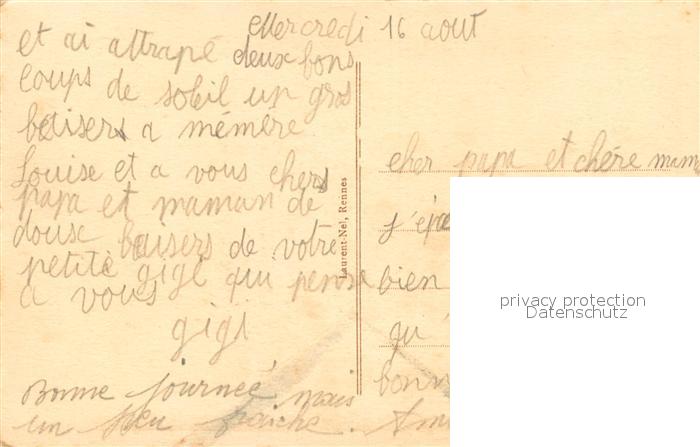 Mercredi 16 aout
cher papa et chère mam
bien
qu'
bonn
et ai attrapé deux bons
coups de soleil un gros
baisers a mémère
Louise et a vous chers
papa et maman de
doux baisers de votre
petite gigi qui pense
a vous
gigi
Bonne journée mais
un peu fraiche.
Laurent-Nel, Rennes
privacy protection
Datenschutz